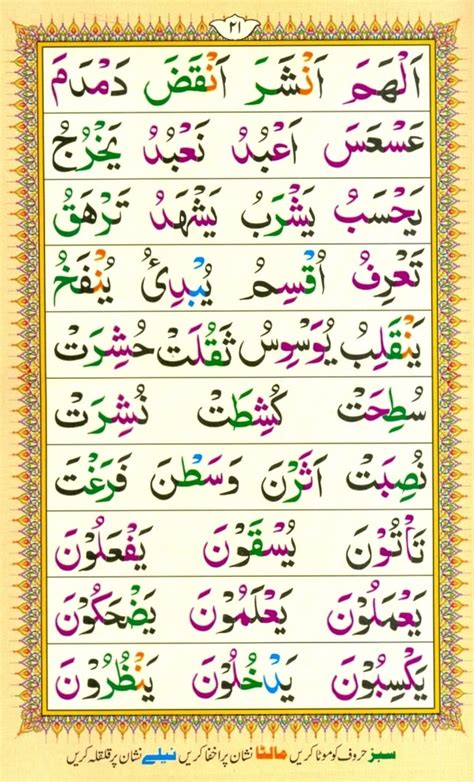 ٢١
اَلْهَمَ اَنْشَرَ اَنْقَضَ دَمْدَمَ
عَسْعَسَ اَعْبُدُ نَعْبُدُ يَخْرُجُ
يَحْسَبُ يَشْرَبُ يَشْهَدُ تَرْهَقُ
تَعْرِفُ اُقْسِمُ يُبْدِئُ يُنْفَخُ
يَنْقَلِبُ يُوَسْوِسُ ثَقُلَتْ حُشِرَتْ
سُطِحَتْ كُشِطَتْ نُشِرَتْ
نُصِبَتْ اَثَرْنَ وَسَطْنَ فَرَغْتَ
تَاْتُوْنَ يُسْقَوْنَ يَفْعَلُوْنَ
يَعْمَلُوْنَ يَعْلَمُوْنَ يَضْحَكُوْنَ
يَكْسِبُوْنَ يَدْخُلُوْنَ يَنْظُرُوْنَ
سبز حروف کو موٹا کریں مالٹا نشان پر اخفا کریں نیلے نشان پر قلقلہ کریں